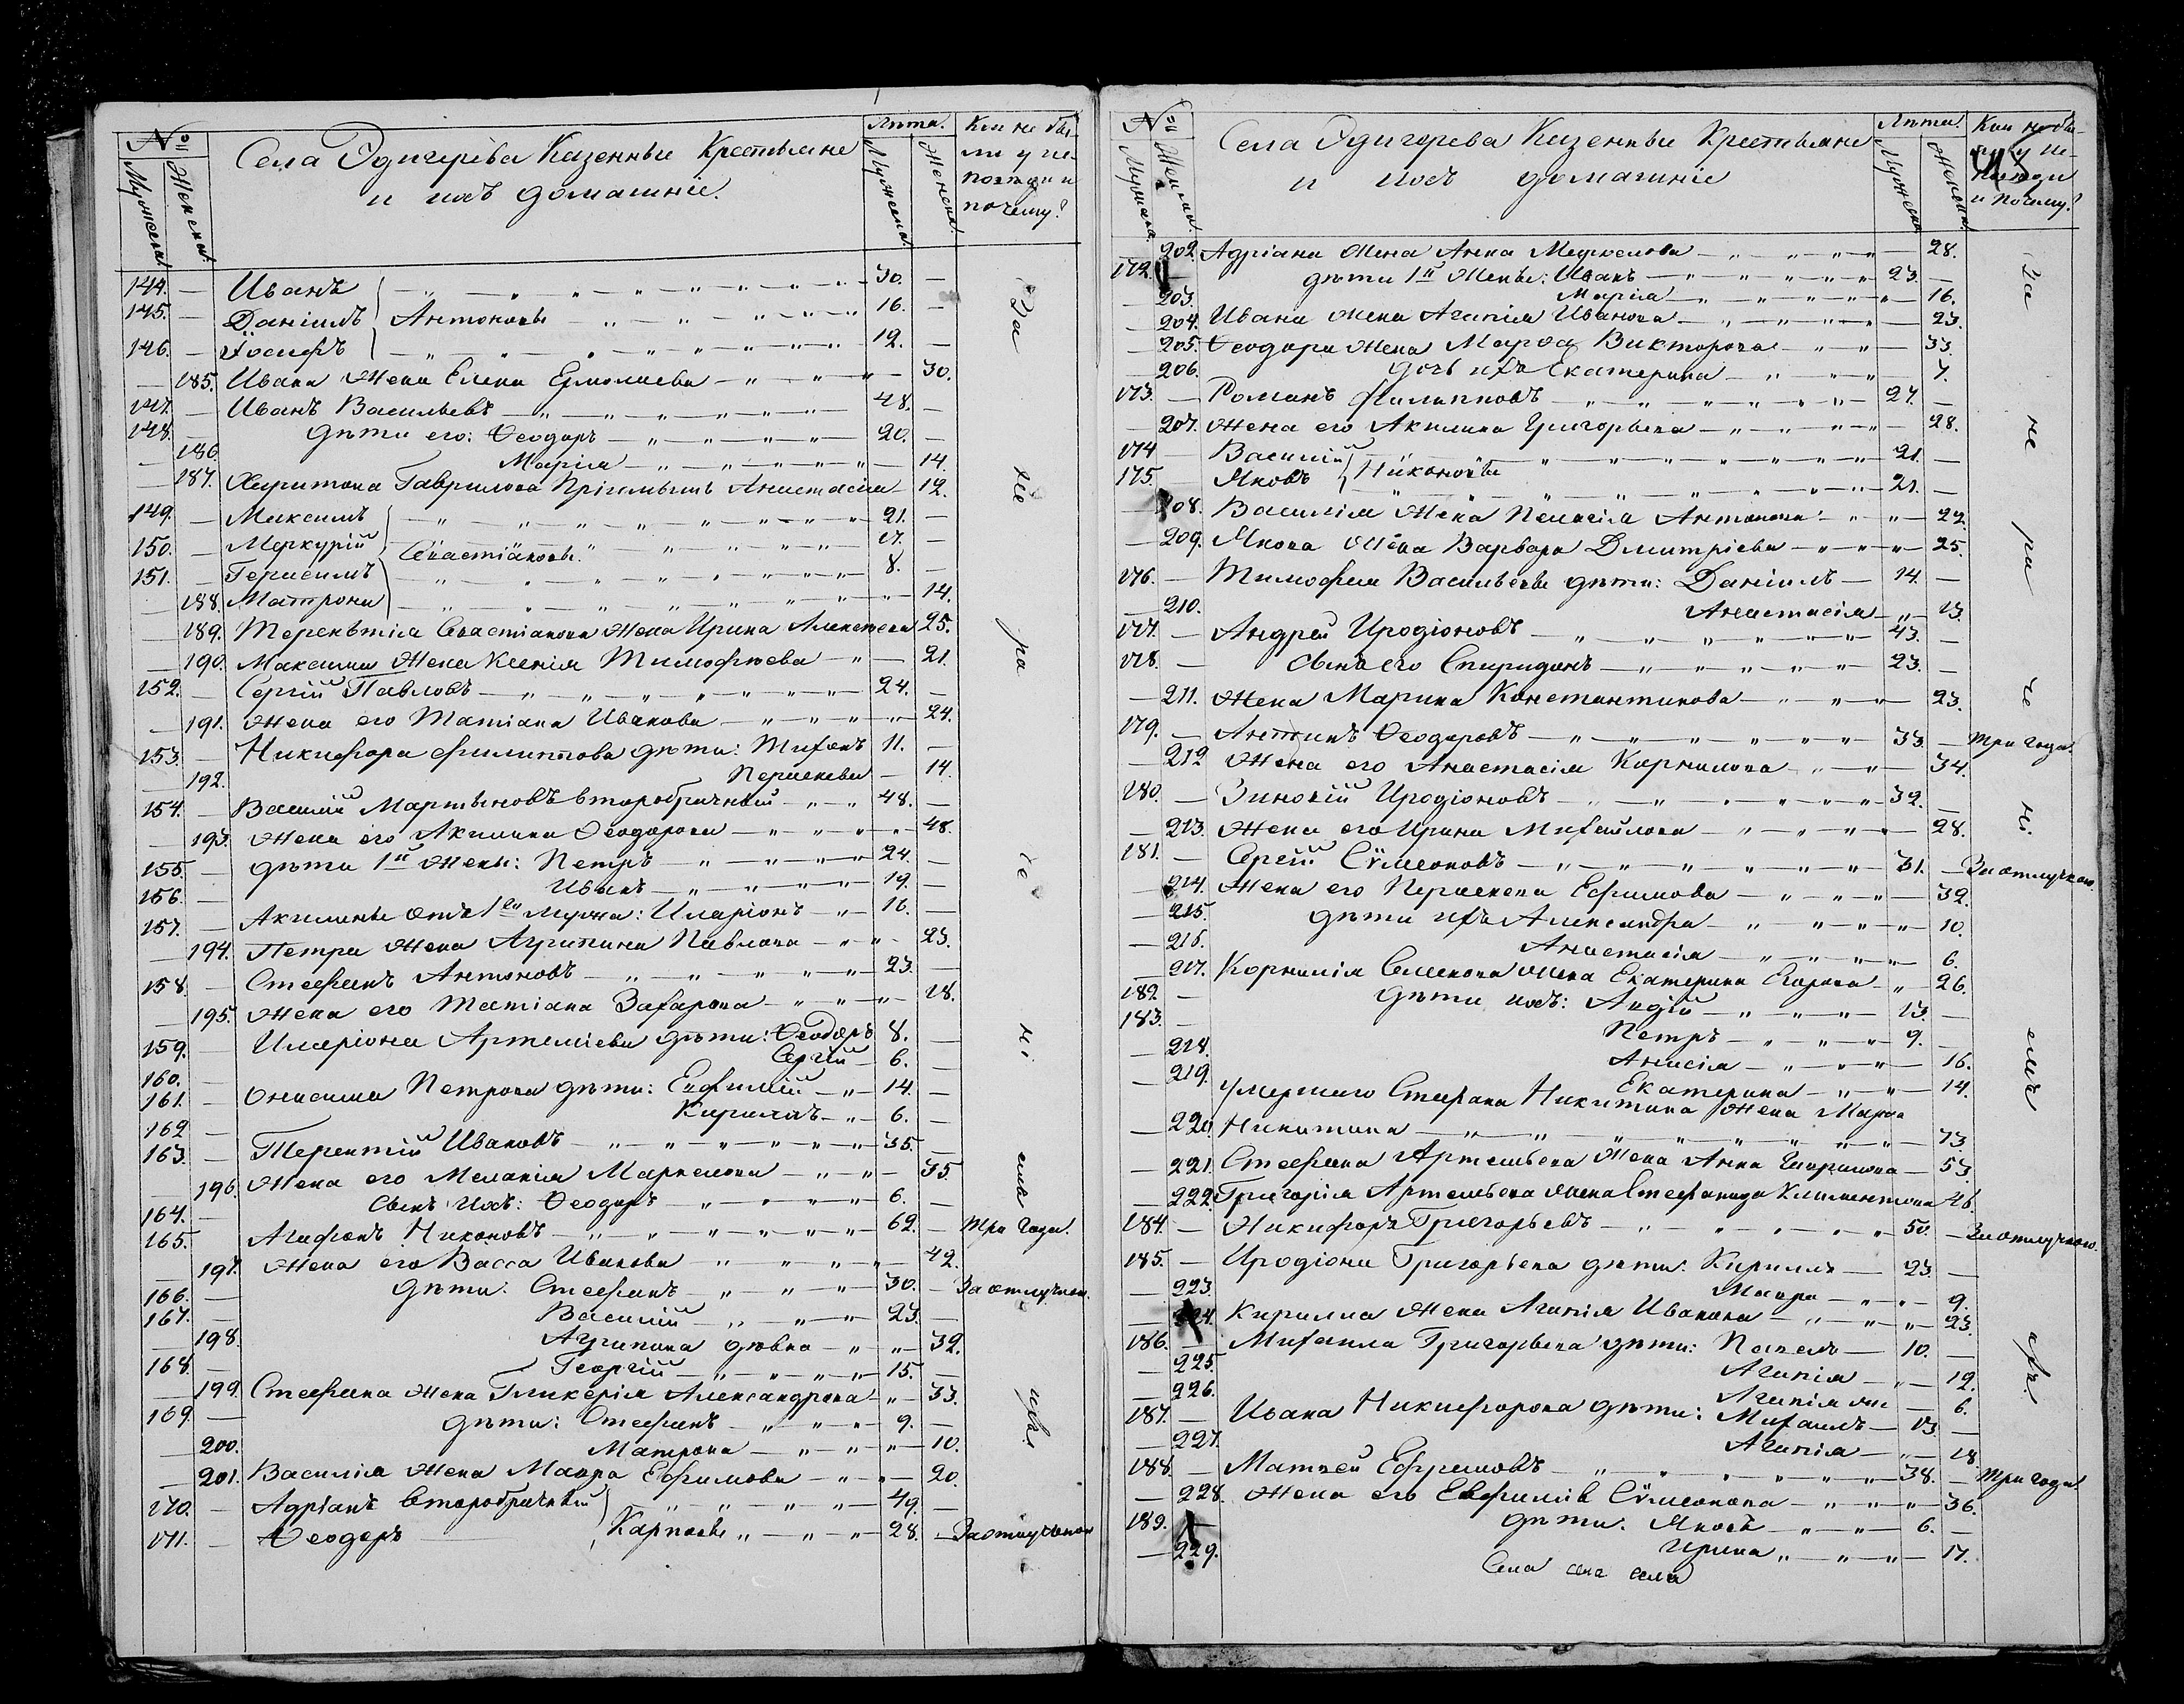 №
Мужеска.
Женска.
Села Одигерева Казенные Крестьяне
и ихъ домашніе.
Лѣта.
Мужеска.
Женска.
Кто не бы-
ли у ис-
повѣди и
почему?
За не ра че ні емъ ихъ.
144. — Иванъ — 30. —
145. — Даніилъ Антоновы — 16. —
146. — Іосифъ — 12. —
— 185. Ивана Жена Елена Ермолаева — 30.
147. — Иванъ Васильевъ — 48. —
148. — дѣти его: Ѳеодоръ — 20. —
— 186. Марія — 14.
— 187. Харитона Гаврилова Анастасія — 12.
149. — Максимъ — 21. —
150. — Меркурій Севастіановы. — 17. —
151. — Герасимъ — 8. —
188. Матрона — 14.
— 189. Терентія Севастіанова Жена Ирина Алексѣева 25.
— 190. Максима Жена Ксенія Тимофѣева — 21.
152. — Сергій Павловъ — 24. —
— 191. Жена его Татіана Иванова — 24.
153. — Никифора Филиппова дѣти: Тихонъ 11. —
— 192. Параскева — 14.
154. — Василій Мартыновъ второбрачный — 48. —
— 193. Жена его Акилина Ѳеодорова — 48.
155. — дѣти 1й Жены: Петръ — 24. —
156. — Иванъ — 19. —
157. — Акилины отъ 1го Мужа: Иларіонъ — 16. —
— 194. Петра Жена Агрипина Павлова — 23.
158. — Стефанъ Антоновъ — 23. —
— 195. Жена его Татіана Захарова — 28.
159. — Иларіона Артеміева дѣти: Ѳеодоръ 8. —
160. — Сергій — 6. —
161. — Онисима Петрова дѣти: Евфимій — 14. —
162 — Кириллъ — 6. —
163. — Терентій Ивановъ — 35. —
— 196. Жена его Меланія Маркелова — 35.
164. — Сынъ ихъ: Ѳеодоръ — 6. —
165. — Агафонъ Никоновъ — 62. — Три года.
— 197. Жена его Васса Иванова — 42.
166. — дѣти: Стефанъ — 30. — За отлучкою.
167. — Василій — 23. —
— 198. Агрипина дѣвка — 32.
168. — Георгій — 15. —
— 199. Стефана Жена Гликерія Александрова — 33.
169. — дѣти: Стефанъ — 9. —
— 200. Матрона — 10.
— 201. Василія Жена Мавра Ефимова — 20.
170. — Адріанъ второбрачный — 49. —
171. — Ѳеодоръ Карповы — 28. — За отлучкою
№
Мужеска.
Женска.
Села Одигерева Казенные Крестьяне
и ихъ домашніе
Лѣта.
Мужеска
Женска
Кто не бы-
ли у ис-
повѣди
и почему?
За не ра че ні емъ ихъ.
202. Адріана Жена Анна — 28.
172. — дѣти 1й Жены: Иванъ — 23. —
— 203. Марія — 16.
— 204. Ивана Жена Агапія Иванова — 23.
— 205. Ѳеодора Жена Марѳа Викторова — 33.
— 206. дочь ихъ Екатерина — 7.
173. — Романъ Филипповъ — 27. —
— 207. Жена его Акилина Григорьева — 28.
174 — Василій — 21. —
175. — Яковъ Никоновы — 21. —
— 208. Василія Жена Пелагія Антонова — 22.
— 209. Якова Жена Варвара Дмитріева — 25.
176. — Тимофея Васильева дѣти: Даніилъ — 14. —
— 210. Анастасія — 13.
177. — Андрей Иродіоновъ — 43. —
178. — Сынъ его Спиридонъ — 23. —
— 211. Жена Марина Константинова — 23.
179. — Антипъ Ѳеодоровъ — 33. — Три года.
— 212 Жена его Анастасія Корнилова — 34.
180. — Зиновій Иродіоновъ — 32. —
— 213. Жена его Ирина Михайлова — 28.
181. — Сергій Сѵмеоновъ — 31. — За отлучкою.
— 214. Жена его Параскева Ефимова — 32.
— 215. дѣти ихъ Александра — 10.
— 216. Анастасія — 6.
— 217. Корнилія Семенова Жена Екатерина Егорова — 26.
182 — дѣти ихъ: Авдій — 13. —
183. — Петръ — 9. —
— 218. Анисія — 16.
— 219. Екатерина — 14.
умершаго Стефана Никитина Жена Марѳа
— 220. Никитина — 73.
— 221. Стефана Артемьева Жена Анна Гаврилова — 53.
— 222. Григорія Артемьева Жена Стефанида Климентова 46.
184. — Никифоръ Григорьевъ — 50. — За отлучкою.
185. — Иродіона Григорьева дѣти: Кириллъ — 23. —
— 223. Мавра — 9.
— 224. Кирилла Жена Агапія Иванова — 23.
186. — Михаила Григорьева дѣти: Павелъ — 10. —
— 225. Агапія — 12.
— 226. Агапія — 6.
187. — Ивана Никифорова дѣти: Михаилъ — 13. —
— 227. Агапія — 18.
188. — Матвей Ефремовъ — 38. — Три года.
— 228. Жена его Евфимія Сѵмеонова — 36.
189. — дѣти: Яковъ — 6. —
— 229. Ирина — 17.
Села села села